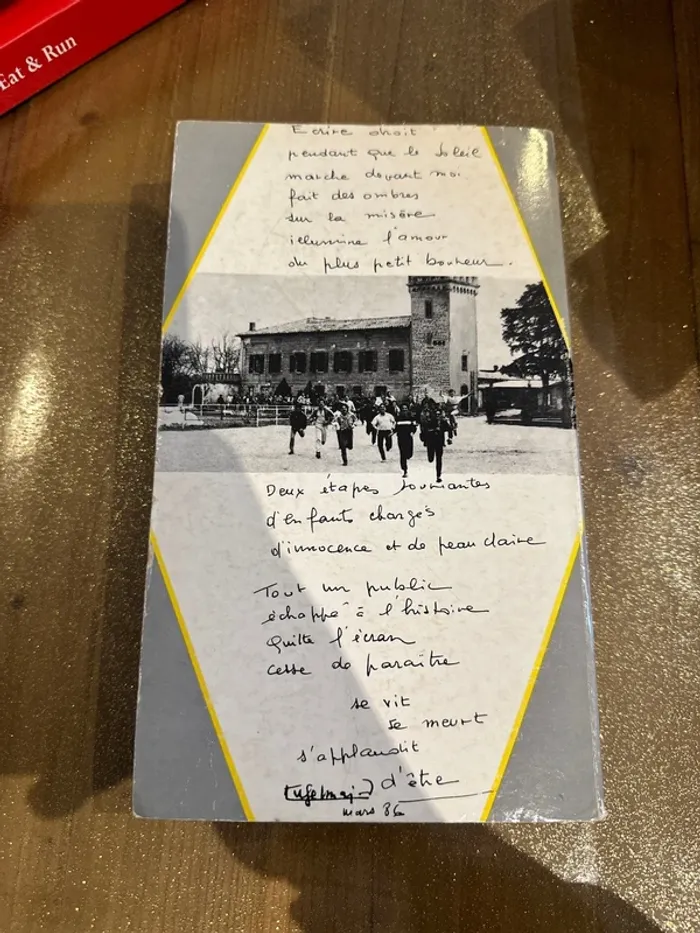 Eat & Run
Ecrire droit
pendant que le soleil
marche devant moi
fait des ombres
sur la misère
illumine l'amour
du plus petit bonheur.
Deux étapes souriantes
d'enfants chargés
d'innocence et de peau claire
Tout un public
échappé à l'histoire
quitte l'écran
cesse de paraître
se vit
se meurt
s'applaudit
d'être
mars 86